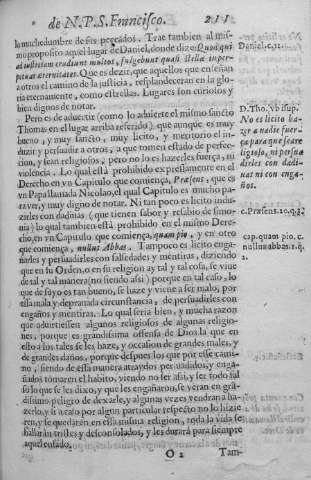 de N.P.S. Francisco. 211
la muchedumbre de sus pecados. Trae tambien al mis-
mo proposito aquel lugar de Daniel, donde dize: Quod qui
ad iustitiam erudiunt multos, fulgebunt quasi stellæ in perpe-
petuas æternitates. Que es dezir, que aquellos que enseñan
a otros el camino de la justicia, resplanderan en la glo
ria eternamente, como estrellas. Lugares son curiosos y
bien dignos de notar.
Daniel, c. 12.
Pero es de aduertir (como lo aduierte el mismo sancto
Thomas en el lugar arriba referido) que aunque es muy
bueno, y muy sancto, muy licito, y meritorio el in-
duzir y persuadir a otros, a que tomen estado de perfec-
cion, y sean religiosos, pero no lo es hazerles fuerça, ni
violencia. Lo qual està prohibido expressamente en el
Derecho en vn Capitulo que comiença, Præsens, que es de
vn Papa llamada Nicolao, el qual Capitulo es mucho pa-
ra ver, y muy digno de notar. Ni tan poco es licito indu-
zirles con dadiuas (que tienen sabor y resabio de simo-
nia) lo qual tambien està prohibido en el mismo Dere-
cho, en vn Capitulo que comiença, quam pio, y en otro
que comiença, nullus Abbas. Tampoco es licito enga-
ñarles y persuadirles con falsedades y mentiras, diziendo
que en su Orden, o en su religion ay tal y tal cosa, se viue
de tal y tal manera (no siendo assi) porque en tal caso, lo
que de suyo es tan bueno, se haze y viene a ser malo, por
essa mala y deprauada circunstancia, de persuadirles con
engaños y mentiras. Lo qual seria bien, y mucha razon
que aduirtiessen algunos religiosos de algunas religio-
nes, porque es grandissima offensa de Dios la que en
esto a los tales se les haze, y occasion de grandes males, y
de grandes daños, porque despues los que por esse cami-
no, siendo de essa manera atraydos persuadidos, y enga-
ñados tomaren el habito, viendo no ser assi, y ser todo fal
so lo que se les dixo, y que les engañaron, se veran en grã-
dissimo peligro de dexarle, y algunas vezes vendran a ha-
zerlo, y si acaso por algun particular respecto no lo hizie
ren, y se quedaren en essa misma religion, toda la vida se
hallaràn tristes y desconsolados, y les durarà para siempre
aquel enfado.
D. Tho. Vbi sup.
No es licito ha-
zer a nadie fuer-
ça para que sea re
ligioso, ni persua
dirles con dadi-
uas ni con enga-
ños.
c. Præsens. 20. q. 3.
cap. quam pio, c.
nullus abbas. 1. q.
2.
O 2 Tam-